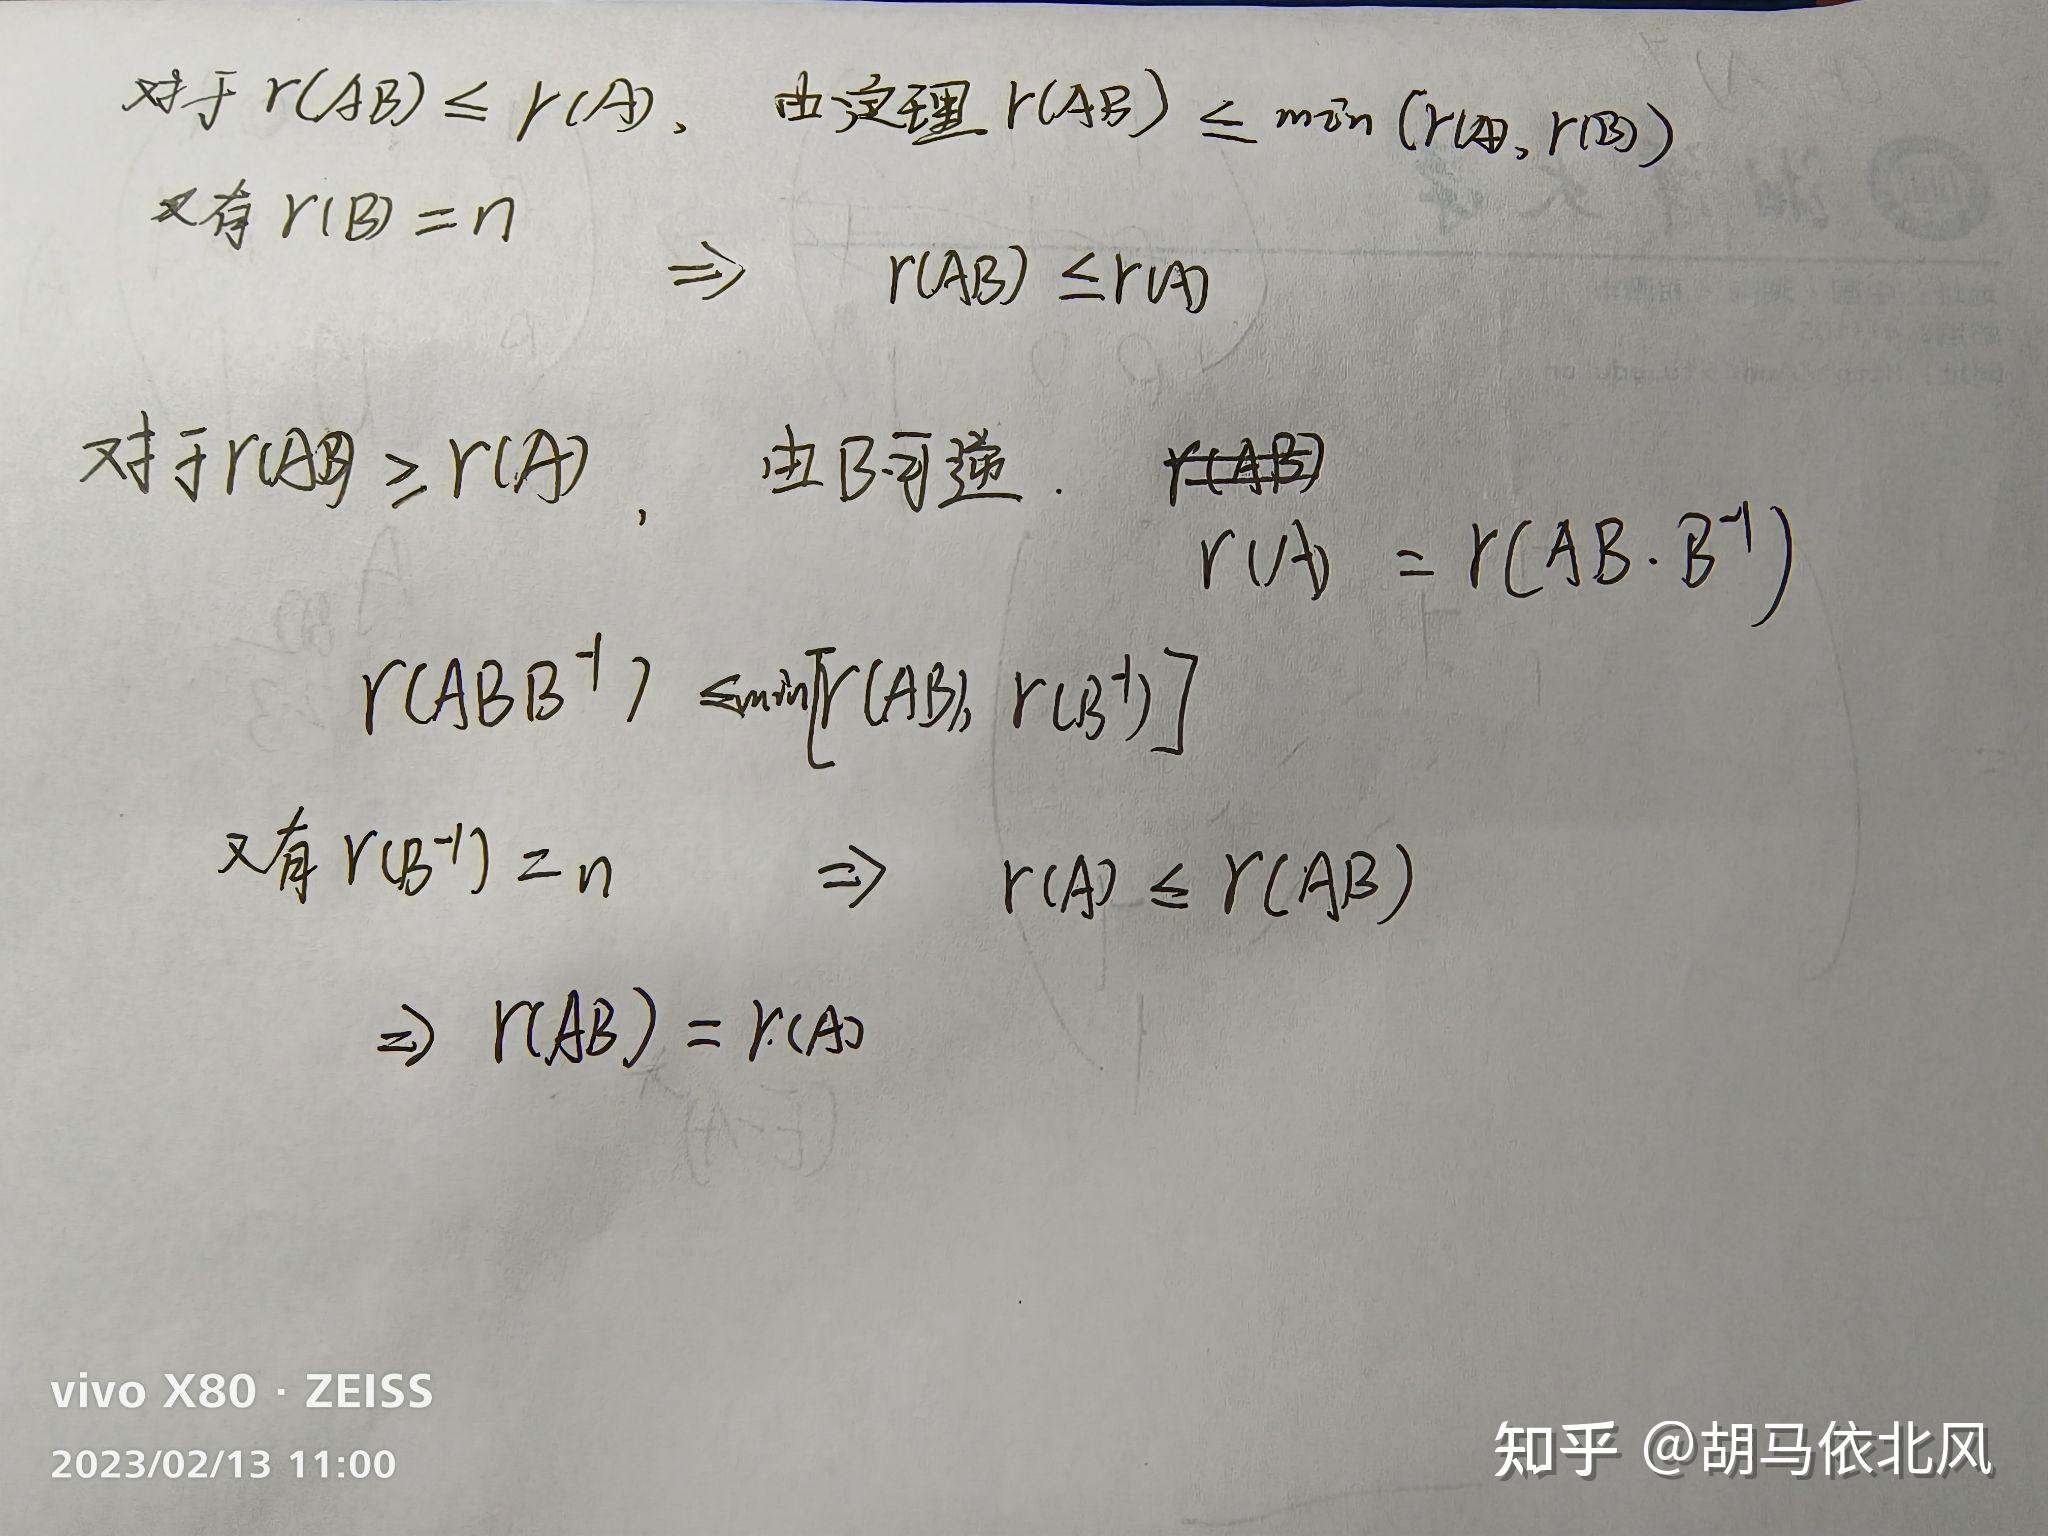 对于 r(AB) ≤ r(A), 由定理 r(AB) ≤ min (r(A), r(B))
又有 r(B) = n
⇒ r(AB) ≤ r(A)
对于 r(AB) ≥ r(A), 由B可逆. r(AB)
r(A) = r(AB·B⁻¹)
r(ABB⁻¹) ≤ min[r(AB), r(B⁻¹)]
又有 r(B⁻¹) = n ⇒ r(A) ≤ r(AB)
⇒ r(AB) = r(A)
vivo X80 · ZEISS
2023/02/13 11:00
知乎 @胡马依北风